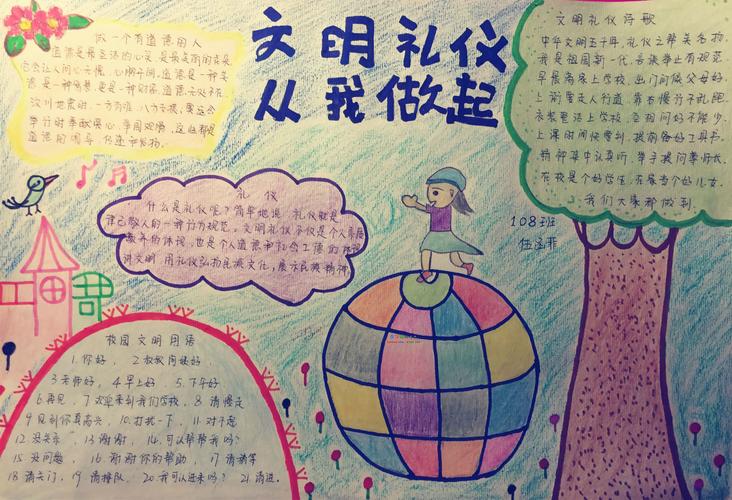 文明礼仪
从我做起
做一个有道德的人
道德是最圣洁的心灵,是最美丽的
它会让人问心无愧,心胸开阔,道德是一种美
汶川地震时,一方有难,八方支援,奥运会
举行时奉献爱心,争国观博,这些都是
道德的
礼仪
什么是礼仪呢?简单地说,礼仪就是
律己敬人的一种行为规范,文明礼仪不仅是个人素质
教养的体现,也是个人道德和社会公德的体现
讲文明,用礼仪弘扬民族文化,展示民族精神
文明礼仪诗歌
中华文明五千年,礼仪之邦美名扬,
我是祖国新一代,言谈举止有规范
早晨离床上学校,出门问候父母好,
上街要走人行道,靠右慢行不乱跑
衣装整洁上学校,至理问好不能少,
上课时间快要到,提前备好工具书
精神集中认真听,举手提问要师长,
在校是个好学生,在家当个好儿女,
我们大家都做到.
108班
伍涵菲
校园文明用语
1.你好, 2.叔叔阿姨好
3.老师好, 4.早上好, 5.下午好
6.再见, 7.欢迎来到我们学校, 8.请慢走
9.见到你真高兴, 10.打扰一下, 11.对不起
12.没关系 13.谢谢, 14.可以帮帮我吗?
15.没问题, 16.谢谢你的帮助, 17.请稍等
18.请关门, 19.请排队, 20.我可以进来吗? 21.请进.